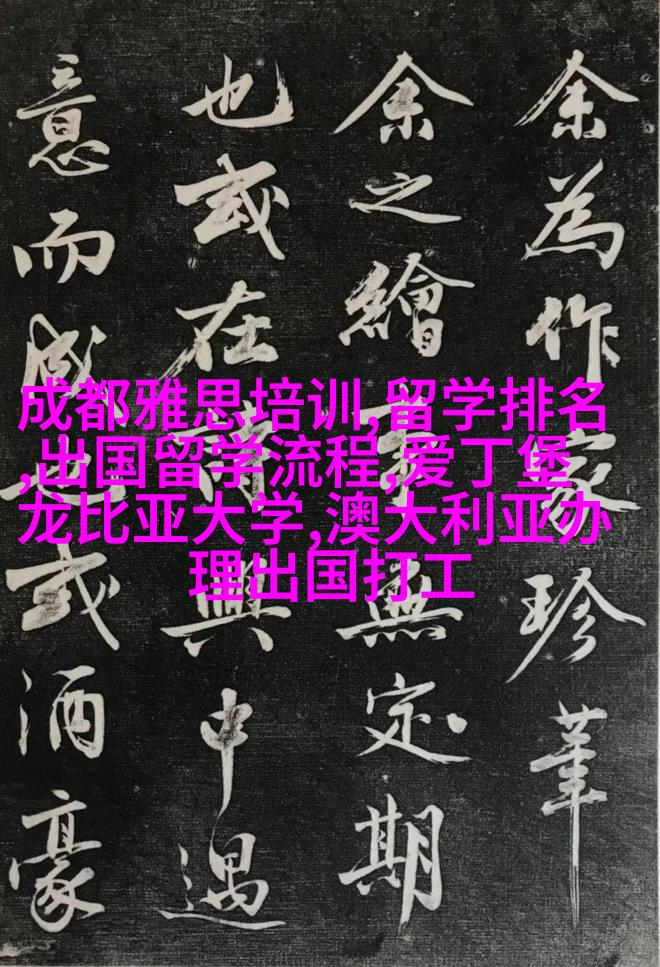 余為作家珍筆
余之繪無定期
也或在興中遇
意而成也或酒豪
成都雅思培训,留学排名
,出国留学流程,爱丁堡
龙比亚大学,澳大利亚办
理出国打工